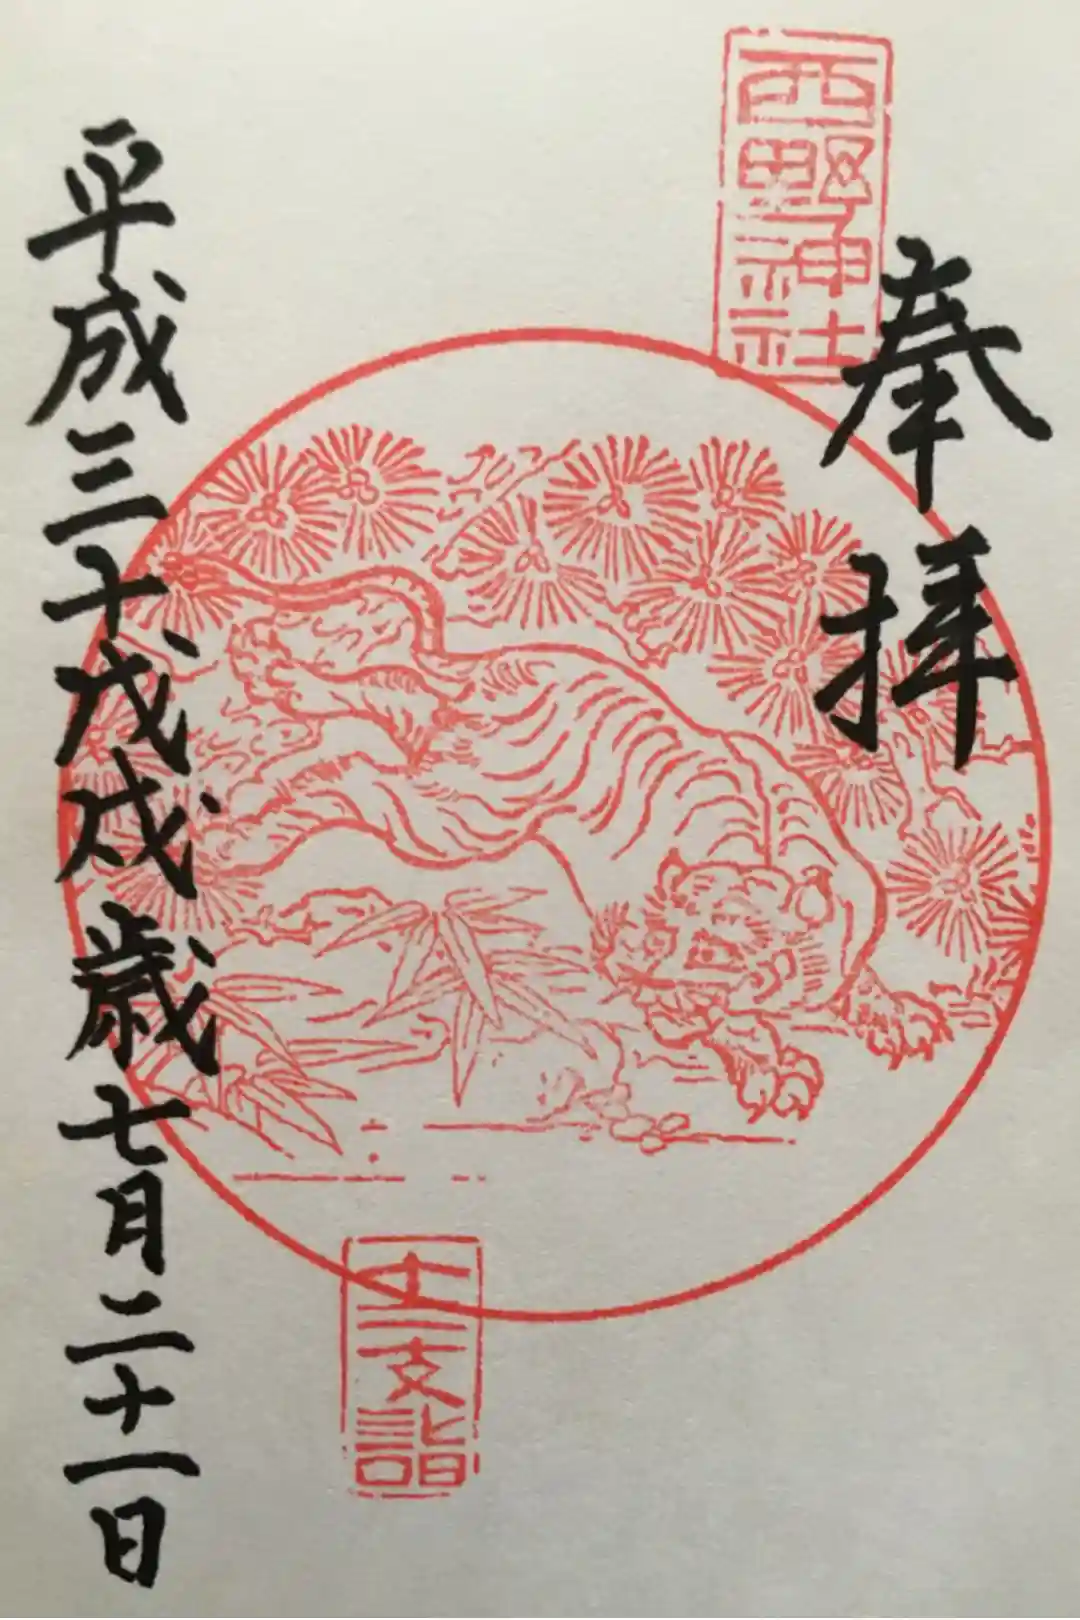 奉拝
西野神社
十二支詣
平成三十戊戌歳七月二十一日